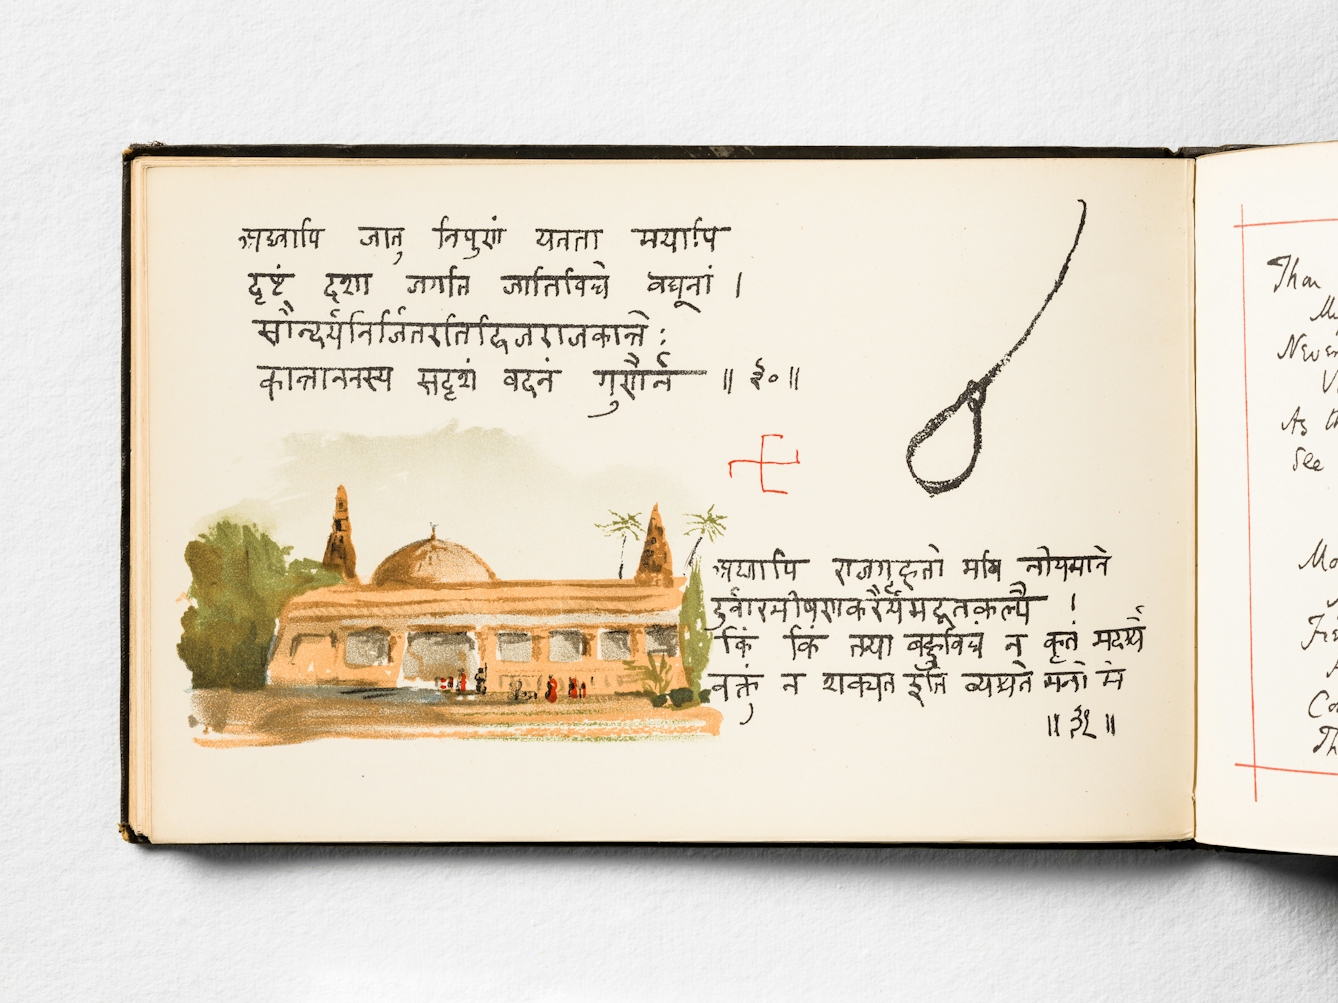 अद्यापि जातु निपुणं यतता मयापि
दृष्टं दृशा जगति जातिविधे वधूनां ।
सौन्दर्यनिर्जितरतिद्विजराजकान्तेः
कान्ताननस्य सदृशं वदनं गुणैर्न ॥ ३० ॥
अद्यापि राजगृहतो मयि नीयमाने
दुर्वारभीषणकरैर्यमदूतकल्पै ।
किं किं तया बहुविधं न कृतं मदर्थे
वक्तुं न शक्यत इति व्यथते मनो मे
॥ ३१ ॥
Than
As
See